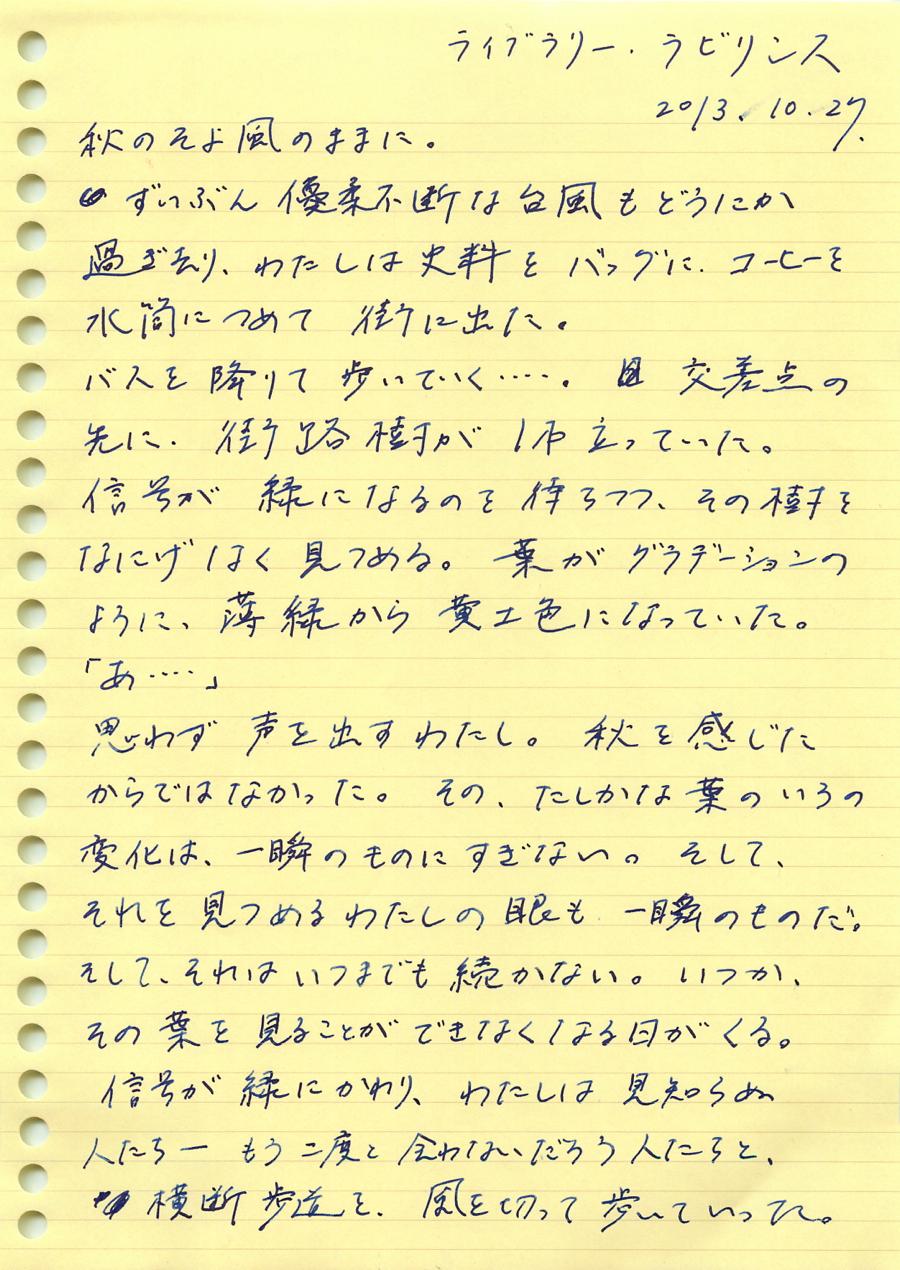 ライブラリー・ラビリンス
2013.10.27.
秋のそよ風のままに。
ずいぶん優柔不断な台風もどうにか
過ぎ去り、わたしは史料をバッグに、コーヒーを
水筒につめて 街に出た。
バスを降りて歩いていく‥‥。 交差点の
先に、街路樹が1本立っていた。
信号が緑になるのを待ちつつ、その樹を
なにげなく見つめる。葉がグラデーションの
ように、薄緑から黄土色になっていた。
「あ‥‥」
思わず声を出すわたし。秋を感じた
からではなかった。その、たしかな葉のいろの
変化は、一瞬のものにすぎない。そして、
それを見つめるわたしの眼も一瞬のものだ。
そして、それはいつまでも続かない。いつか、
その葉を見ることができなくなる日がくる。
信号が緑にかわり、わたしは見知らぬ
人たち― もう二度と会わないだろう人たちと、
横断歩道を、風を切って歩いていった。